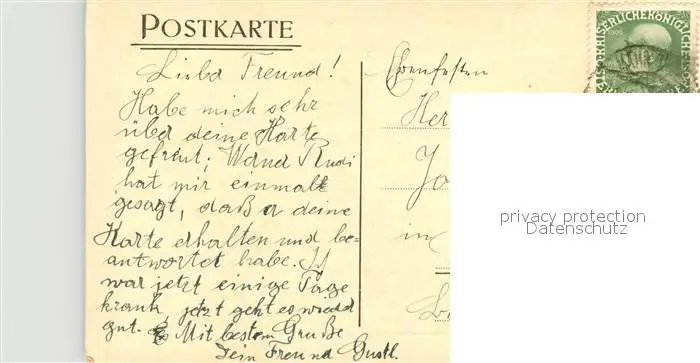 POSTKARTE
Liebe Freund!
Habe mich sehr
über deine Karte
gefreut; Rudi
hat mir einmal
gesagt, daß er deine
Karte erhalten und be-
antwortet habe. Ich
war jetzt einige Tage
krank, jetzt geht es wieder
gut. Mit bestem Gruße
Dein Freund Gustl.
Ehrenfesten
Her
Jo
in
KAISERLICHE KÖNIGLICHE
1908
privacy protection
Datenschutz